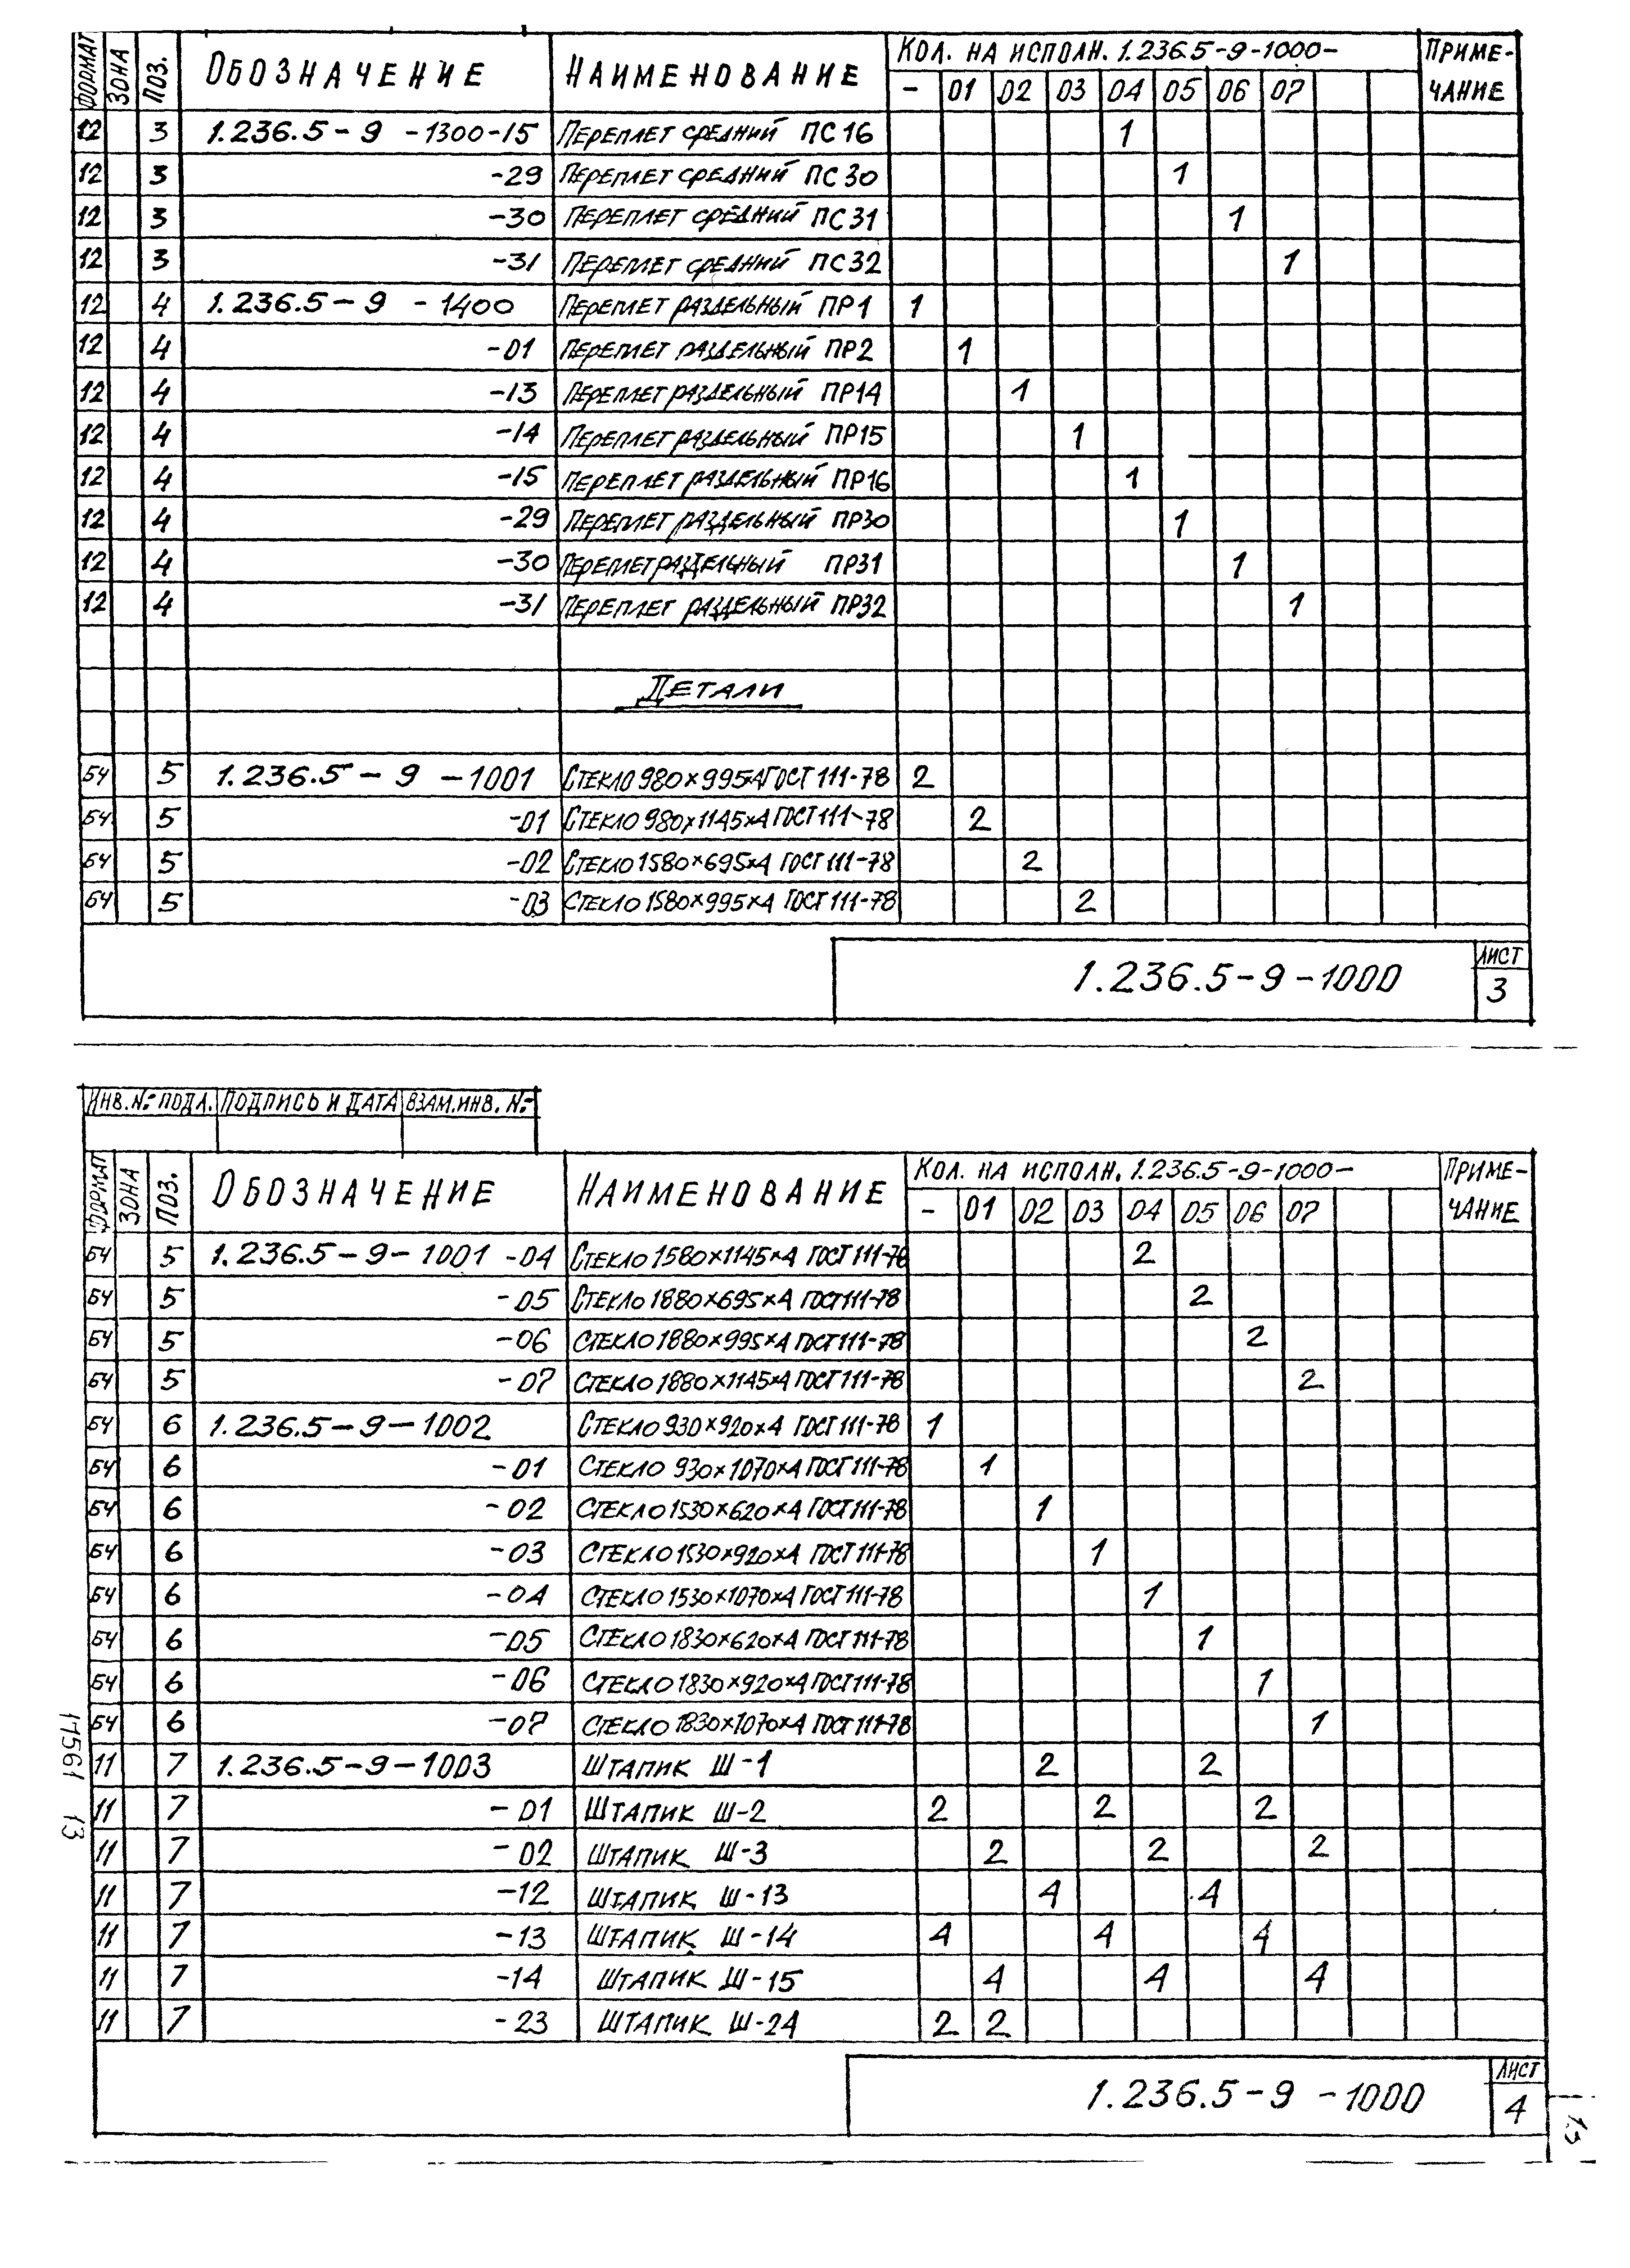 ФОРМАТ ЗОНА ПОЗ. ОБОЗНАЧЕНИЕ НАИМЕНОВАНИЕ КОЛ. НА ИСПОЛН. 1.236.5-9-1000- ПРИМЕ-
- 01 02 03 04 05 06 07 ЧАНИЕ
12 3 1.236.5-9 -1300-15 ПЕРЕПЛЕТ СРЕДНИЙ ПС16 1
12 3 -29 ПЕРЕПЛЕТ СРЕДНИЙ ПС30 1
12 3 -30 ПЕРЕПЛЕТ СРЕДНИЙ ПС31 1
12 3 -31 ПЕРЕПЛЕТ СРЕДНИЙ ПС32 1
12 4 1.236.5-9 -1400 ПЕРЕПЛЕТ РАЗДЕЛЬНЫЙ ПР1 1
12 4 -01 ПЕРЕПЛЕТ РАЗДЕЛЬНЫЙ ПР2 1
12 4 -13 ПЕРЕПЛЕТ РАЗДЕЛЬНЫЙ ПР14 1
12 4 -14 ПЕРЕПЛЕТ РАЗДЕЛЬНЫЙ ПР15 1
12 4 -15 ПЕРЕПЛЕТ РАЗДЕЛЬНЫЙ ПР16 1
12 4 -29 ПЕРЕПЛЕТ РАЗДЕЛЬНЫЙ ПР30 1
12 4 -30 ПЕРЕПЛЕТ РАЗДЕЛЬНЫЙ ПР31 1
12 4 -31 ПЕРЕПЛЕТ РАЗДЕЛЬНЫЙ ПР32 1
ДЕТАЛИ
БЧ 5 1.236.5-9 -1001 СТЕКЛО 980×995×4 ГОСТ 111-78 2
БЧ 5 -01 СТЕКЛО 980×1145×4 ГОСТ 111-78 2
БЧ 5 -02 СТЕКЛО 1580×695×4 ГОСТ 111-78 2
БЧ 5 -03 СТЕКЛО 1580×995×4 ГОСТ 111-78 2
1.236.5-9-1000 ЛИСТ
3
ИНВ. № ПОДЛ. ПОДПИСЬ И ДАТА ВЗАМ. ИНВ. №
ФОРМАТ ЗОНА ПОЗ. ОБОЗНАЧЕНИЕ НАИМЕНОВАНИЕ КОЛ. НА ИСПОЛН. 1.236.5-9-1000- ПРИМЕ-
- 01 02 03 04 05 06 07 ЧАНИЕ
БЧ 5 1.236.5-9-1001 -04 СТЕКЛО 1580×1145×4 ГОСТ 111-78 2
БЧ 5 -05 СТЕКЛО 1880×695×4 ГОСТ 111-78 2
БЧ 5 -06 СТЕКЛО 1880×995×4 ГОСТ 111-78 2
БЧ 5 -07 СТЕКЛО 1880×1145×4 ГОСТ 111-78 2
БЧ 6 1.236.5-9-1002 СТЕКЛО 930×920×4 ГОСТ 111-78 1
БЧ 6 -01 СТЕКЛО 930×1070×4 ГОСТ 111-78 1
БЧ 6 -02 СТЕКЛО 1530×620×4 ГОСТ 111-78 1
БЧ 6 -03 СТЕКЛО 1530×920×4 ГОСТ 111-78 1
БЧ 6 -04 СТЕКЛО 1530×1070×4 ГОСТ 111-78 1
БЧ 6 -05 СТЕКЛО 1830×620×4 ГОСТ 111-78 1
БЧ 6 -06 СТЕКЛО 1830×920×4 ГОСТ 111-78 1
БЧ 6 -07 СТЕКЛО 1830×1070×4 ГОСТ 111-78 1
11 7 1.236.5-9-1003 ШТАПИК Ш-1 2 2
11 7 -01 ШТАПИК Ш-2 2 2 2
11 7 -02 ШТАПИК Ш-3 2 2 2
11 7 -12 ШТАПИК Ш-13 4 4
11 7 -13 ШТАПИК Ш-14 4 4 4
11 7 -14 ШТАПИК Ш-15 4 4 4
11 7 -23 ШТАПИК Ш-24 2 2
17561 13
1.236.5-9 -1000 ЛИСТ
4
13